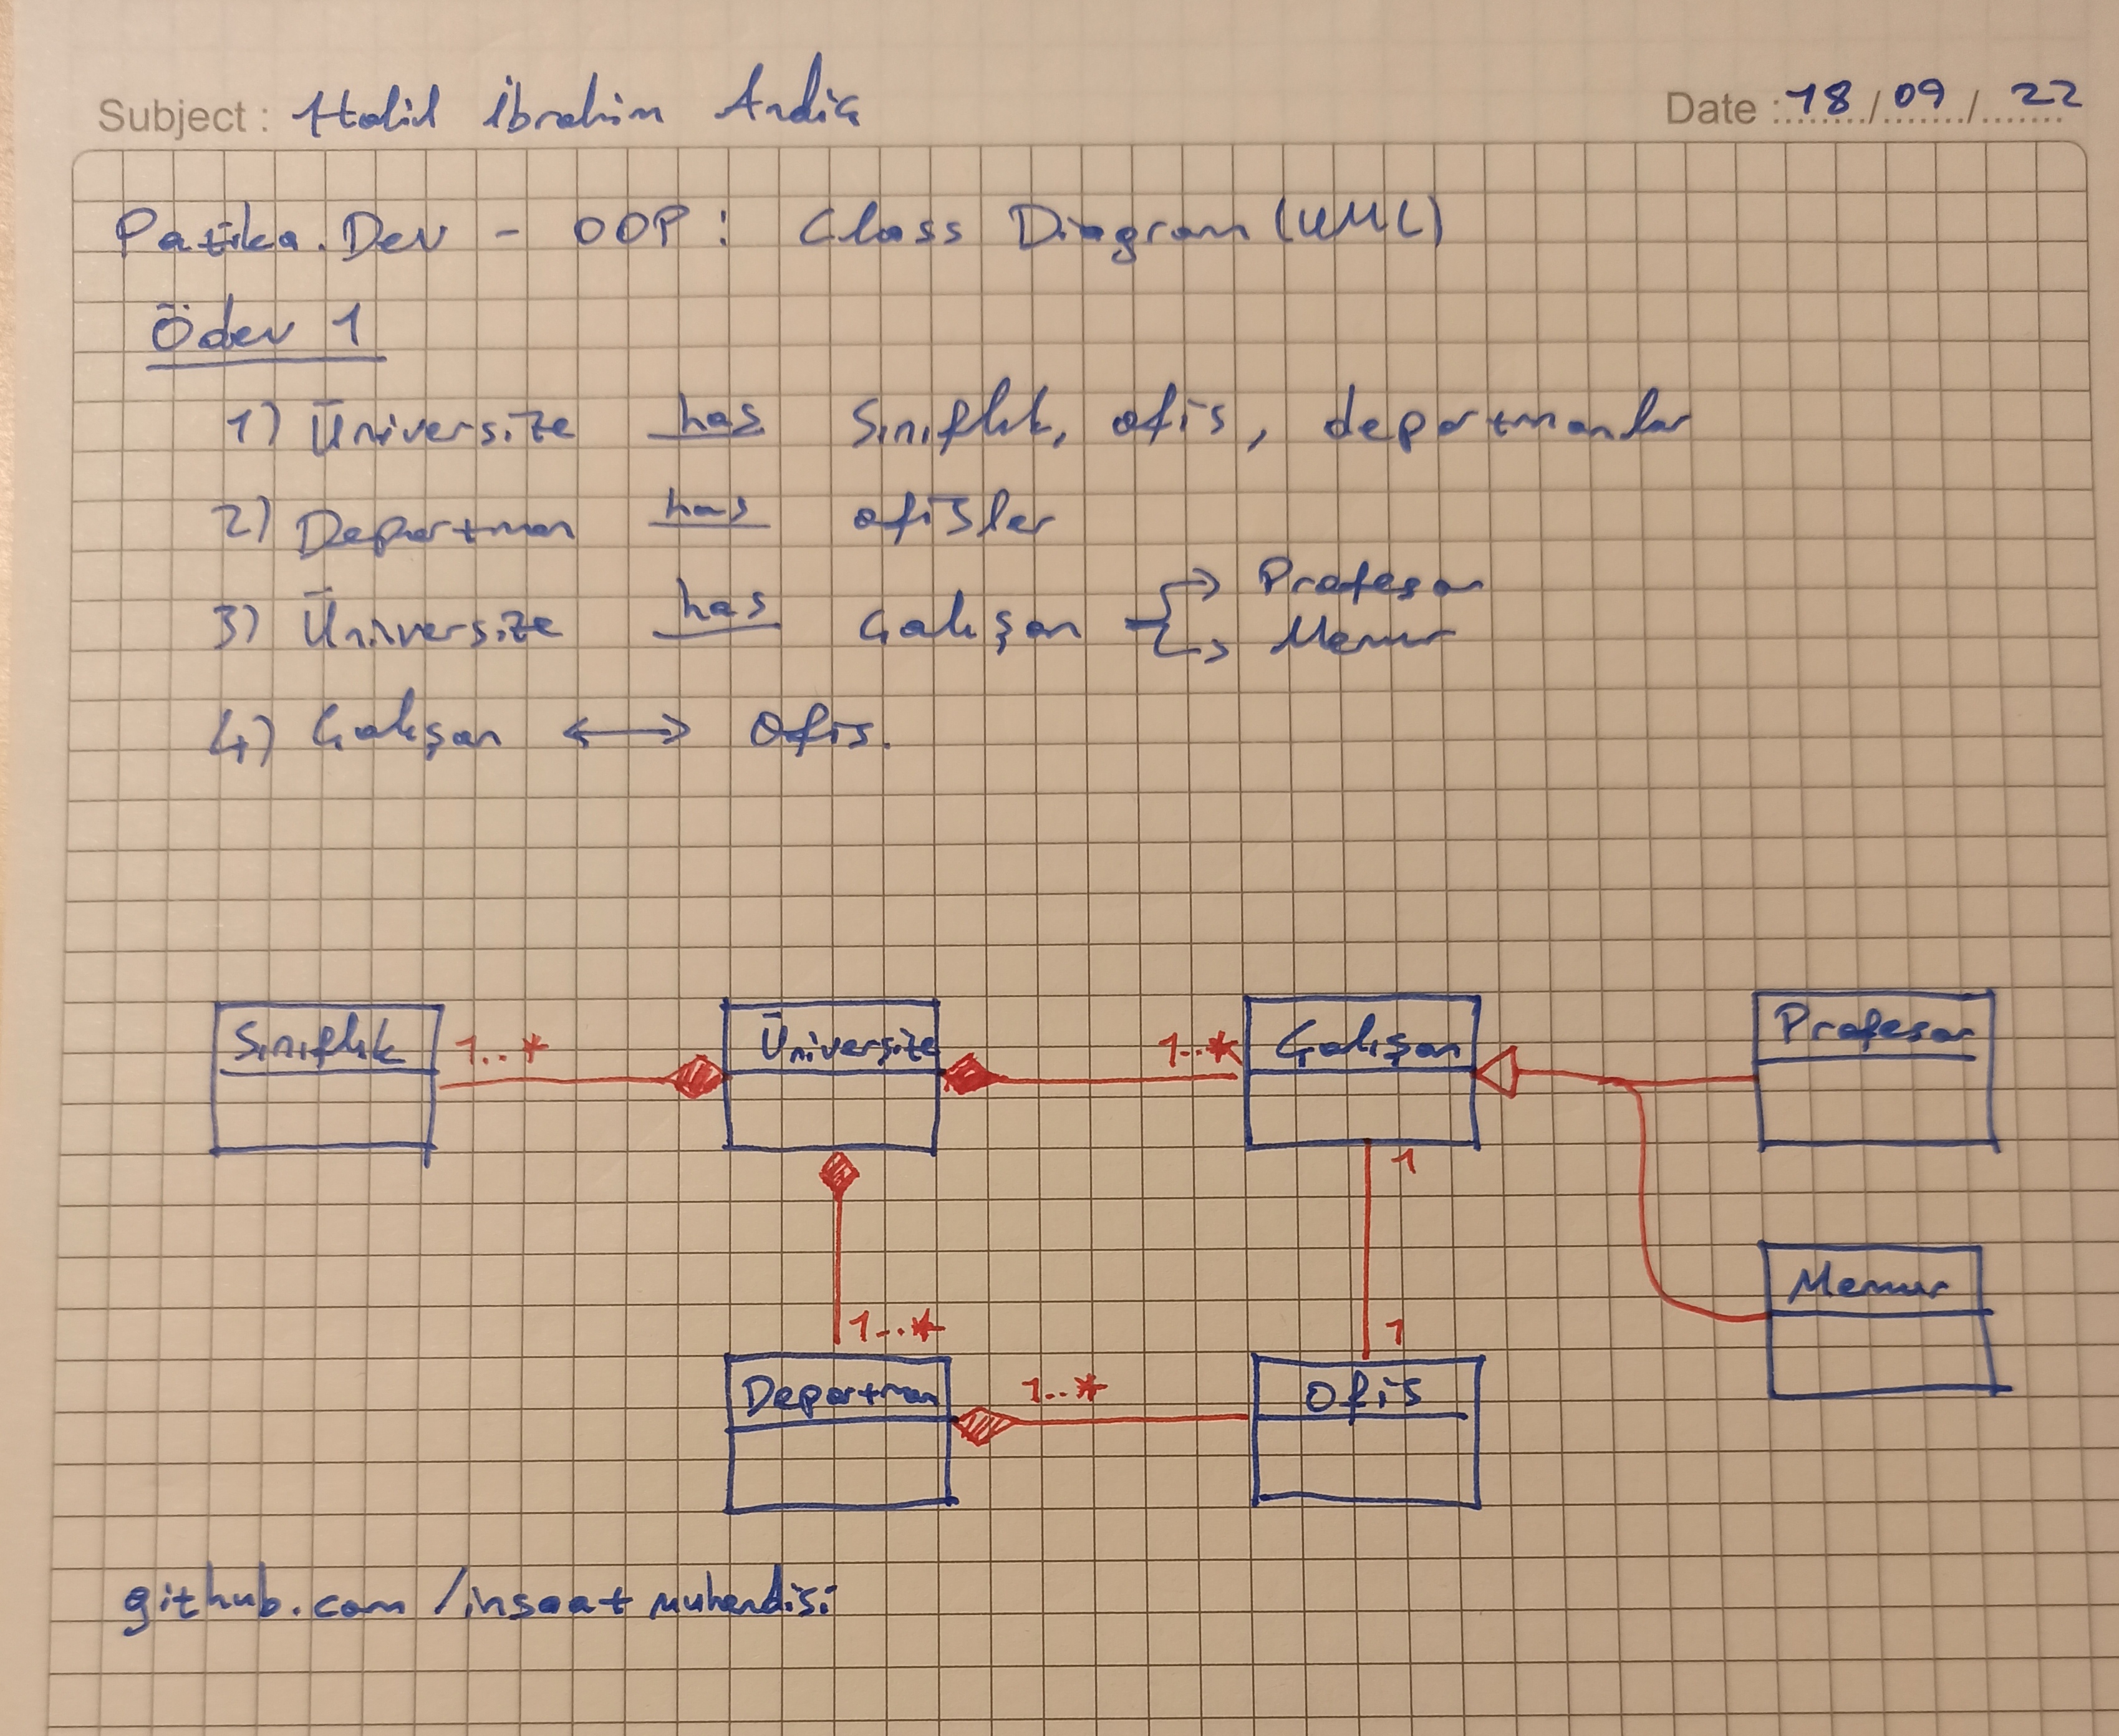 Subject : Halil İbrahim Andiç
Date : 18 / 09 / 22
Patika.Dev - OOP : Class Diagram (UML)
Ödev 1
1) Üniversite has Sınıflık, ofis, departmanlar
2) Departman has ofisler
3) Üniversite has Çalışan → Profesör
→ Memur
4) Çalışan ↔ Ofis.
Sınıflık
1..*
Üniversite
1..*
Çalışan
Profesor
1
Memur
1..*
1
Departman
1..*
Ofis
github.com/insaatmuhendisi